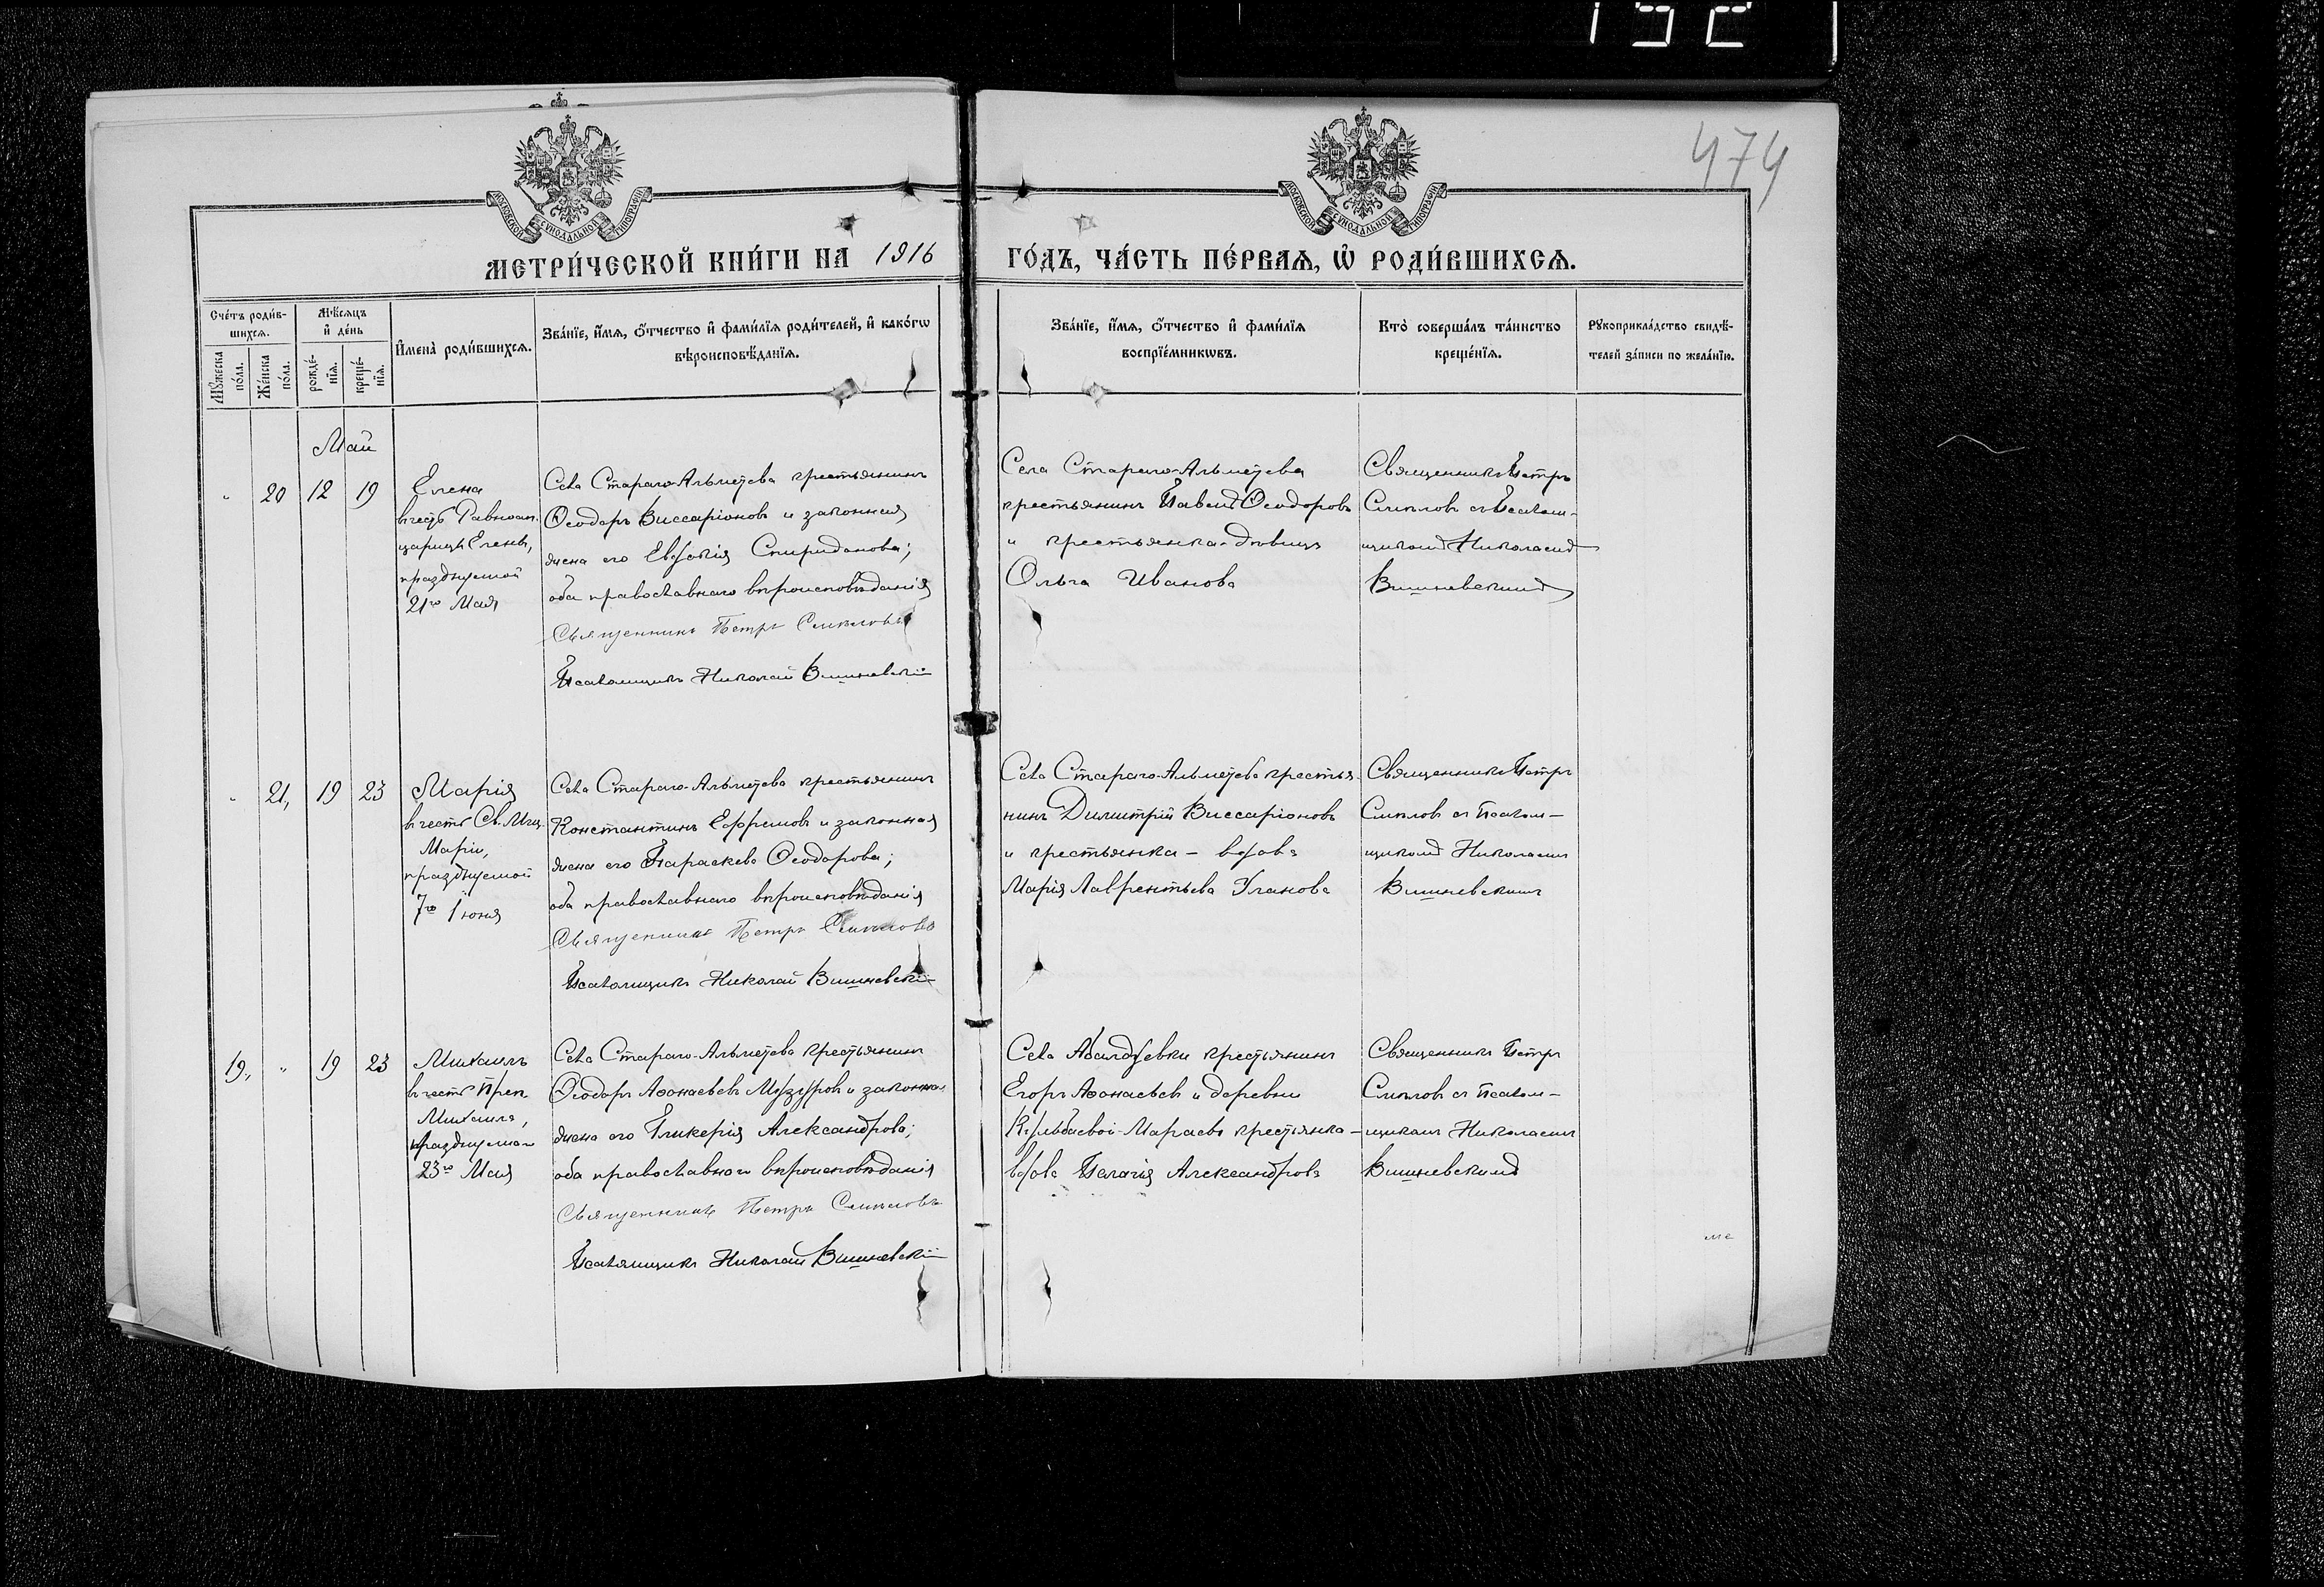 192
474
МОСКОВСКОЙ СѴНОДАЛЬНОЙ ТИПОГРАФІИ
МОСКОВСКОЙ СѴНОДАЛЬНОЙ ТИПОГРАФІИ
МЕТРИ́ЧЕСКОЙ КНИ́ГИ НА 1916 ГО́ДЪ, ЧА́СТЬ ПЕ́РВАѦ, Ѡ҆ РОДИ́ВШИХСѦ.
Сче́тъ роди́в-
шихсѧ.
Мꙋ́жеска
по́ла.
Же́нска
по́ла.
Мѣ́сѧцъ
и҆ де́нь
рожде́-
нїѧ.
креще́-
нїѧ.
И҆мена̀ роди́вшихсѧ.
Зва́нїе, и҆́мѧ, ѻ҆́тчество и҆ фами́лїѧ роди́телей, и҆ како́гѡ
вѣроисповѣ́данїѧ.
Зва́нїе, и҆́мѧ, ѻ҆́тчество и҆ фами́лїѧ
воспрїе́мникѡвъ.
Кто̀ соверша́лъ та́инство
креще́нїѧ.
Рꙋкоприкла́дство свидѣ́-
телей за́писи по жела́нїю.
Май
" 20 12 19
Елена
въ честь Равноап.
царицы Елены,
празднуемой
21го Мая
Села Стараго-Альметева крестьянинъ
Ѳеодоръ Виссаріоновъ и законная
жена его Евфимія Спиридонова;
оба православнаго вѣроисповѣданія
Священникъ Петръ Смѣловъ
Псаломщикъ Николай Вишневскій
Села Стараго-Альметева
крестьянинъ Павелъ Ѳеодоровъ
и крестьянка-дѣвица
Ольга Иванова
Священникъ Петръ
Смѣловъ съ Псалом-
щикомъ Николаемъ
Вишневскимъ
" 21, 19 23
Марія
въ честь Св. Мчц.
Маріи,
празднуемой
7го Іюня
Села Стараго-Альметева крестьянинъ
Константинъ Ефремовъ и законная
жена его Параскева Ѳеодорова;
оба православнаго вѣроисповѣданія
Священникъ Петръ Смѣловъ
Псаломщикъ Николай Вишневскій
Села Стараго-Альметева крестья-
нинъ Димитрій Виссаріоновъ
и крестьянка - вдова
Марія Лаврентьева Уланова
Священникъ Петръ
Смѣловъ съ Псалом-
щикомъ Николаемъ
Вишневскимъ
19, " 19 23
Михаилъ
въ честь Преп.
Михаила,
празднуемаго
23го Мая
Села Стараго-Альметева крестьянинъ
Ѳеодоръ Аѳонасьевъ Музуровъ и законная
жена его Гликерія Александрова;
оба православнаго вѣроисповѣданія
Священникъ Петръ Смѣловъ
Псаломщикъ Николай Вишневскій
Села Абалдуевки крестьянинъ
Егоръ Аѳонасьевъ и деревни
Кульбаевой-Мараево крестьянка -
вдова Пелагія Александрова
Священникъ Петръ
Смѣловъ съ Псалом-
щикомъ Николаемъ
Вишневскимъ